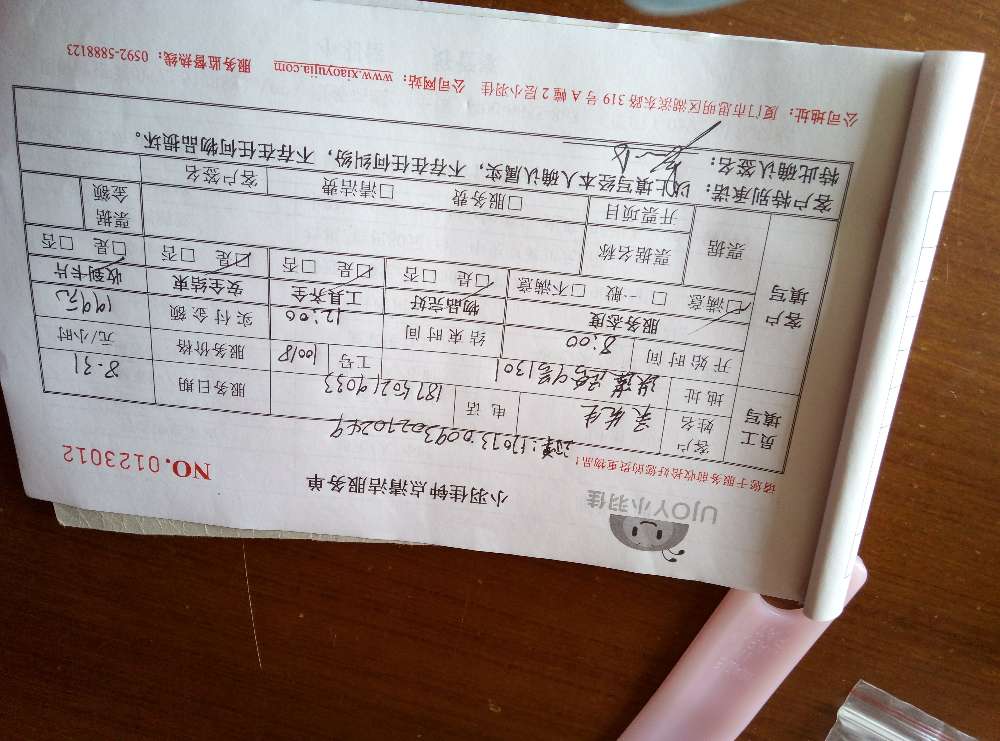 UJOY小羽佳
小羽佳钟点清洁服务单
NO.0123012
请您于服务前收捡好您的贵重物品!
员工填写 客户姓名 吴先生 电话 18150219033 服务日期 8.31
地址 工号 10018 服务价格 元/小时
开始时间 8:00 结束时间 12:00 实付金额
客户填写 服务态度 物品完好 工具齐全 安全结束 收到卡片
☑满意 □一般 □不满意 ☑是 □否 ☑是 □否 ☑是 □否 □是 □否
票据 票据名称 票据金额
开票项目 □服务费 □清洁费 客户签名
客户特别承诺:以上填写经本人确认属实,不存在任何纠纷,不存在任何物品损坏。
特此确认签名:
公司地址:厦门市思明区湖滨东路 319 号 A 幢 2 层小羽佳 公司网站:www.xiaoyujia.com 服务监督热线:0592-5888123